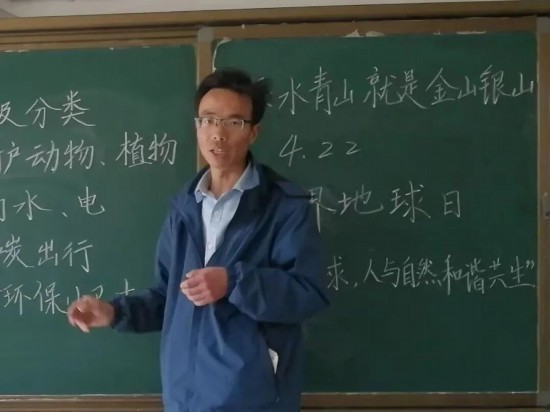 圾分类
护动物、植物
水、电
炭出行
环保小卫士
水青山就是金山银山
4.22
界地球日
球，人与自然和谐共生”